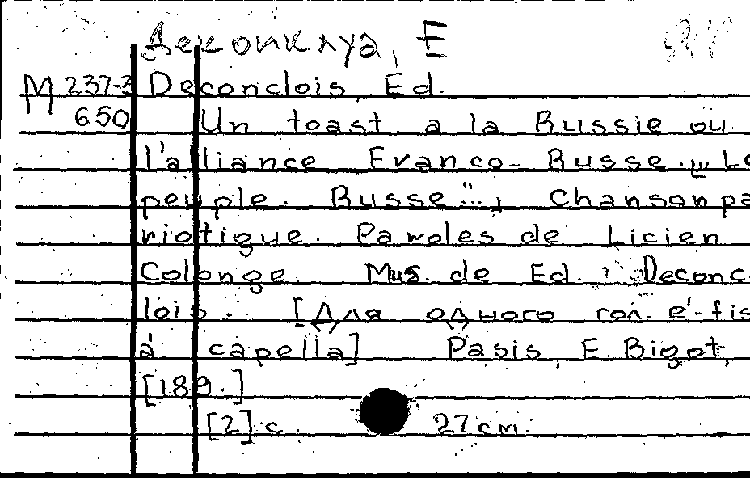 Деконклуа, Е
М 237-3 Deconclois, Ed.
650 Un toast a la Russie ou
l'alliance Franco-Russe... Le
peuple. Russe..., Chanson pa
riotique. Paroles de Licien
Colonge. Mus. de Ed. Deconc
lois. [Для одного гол. e'-fis
à capella] Pasis, E Bigot,
[189.]
[2] с. 27 см.